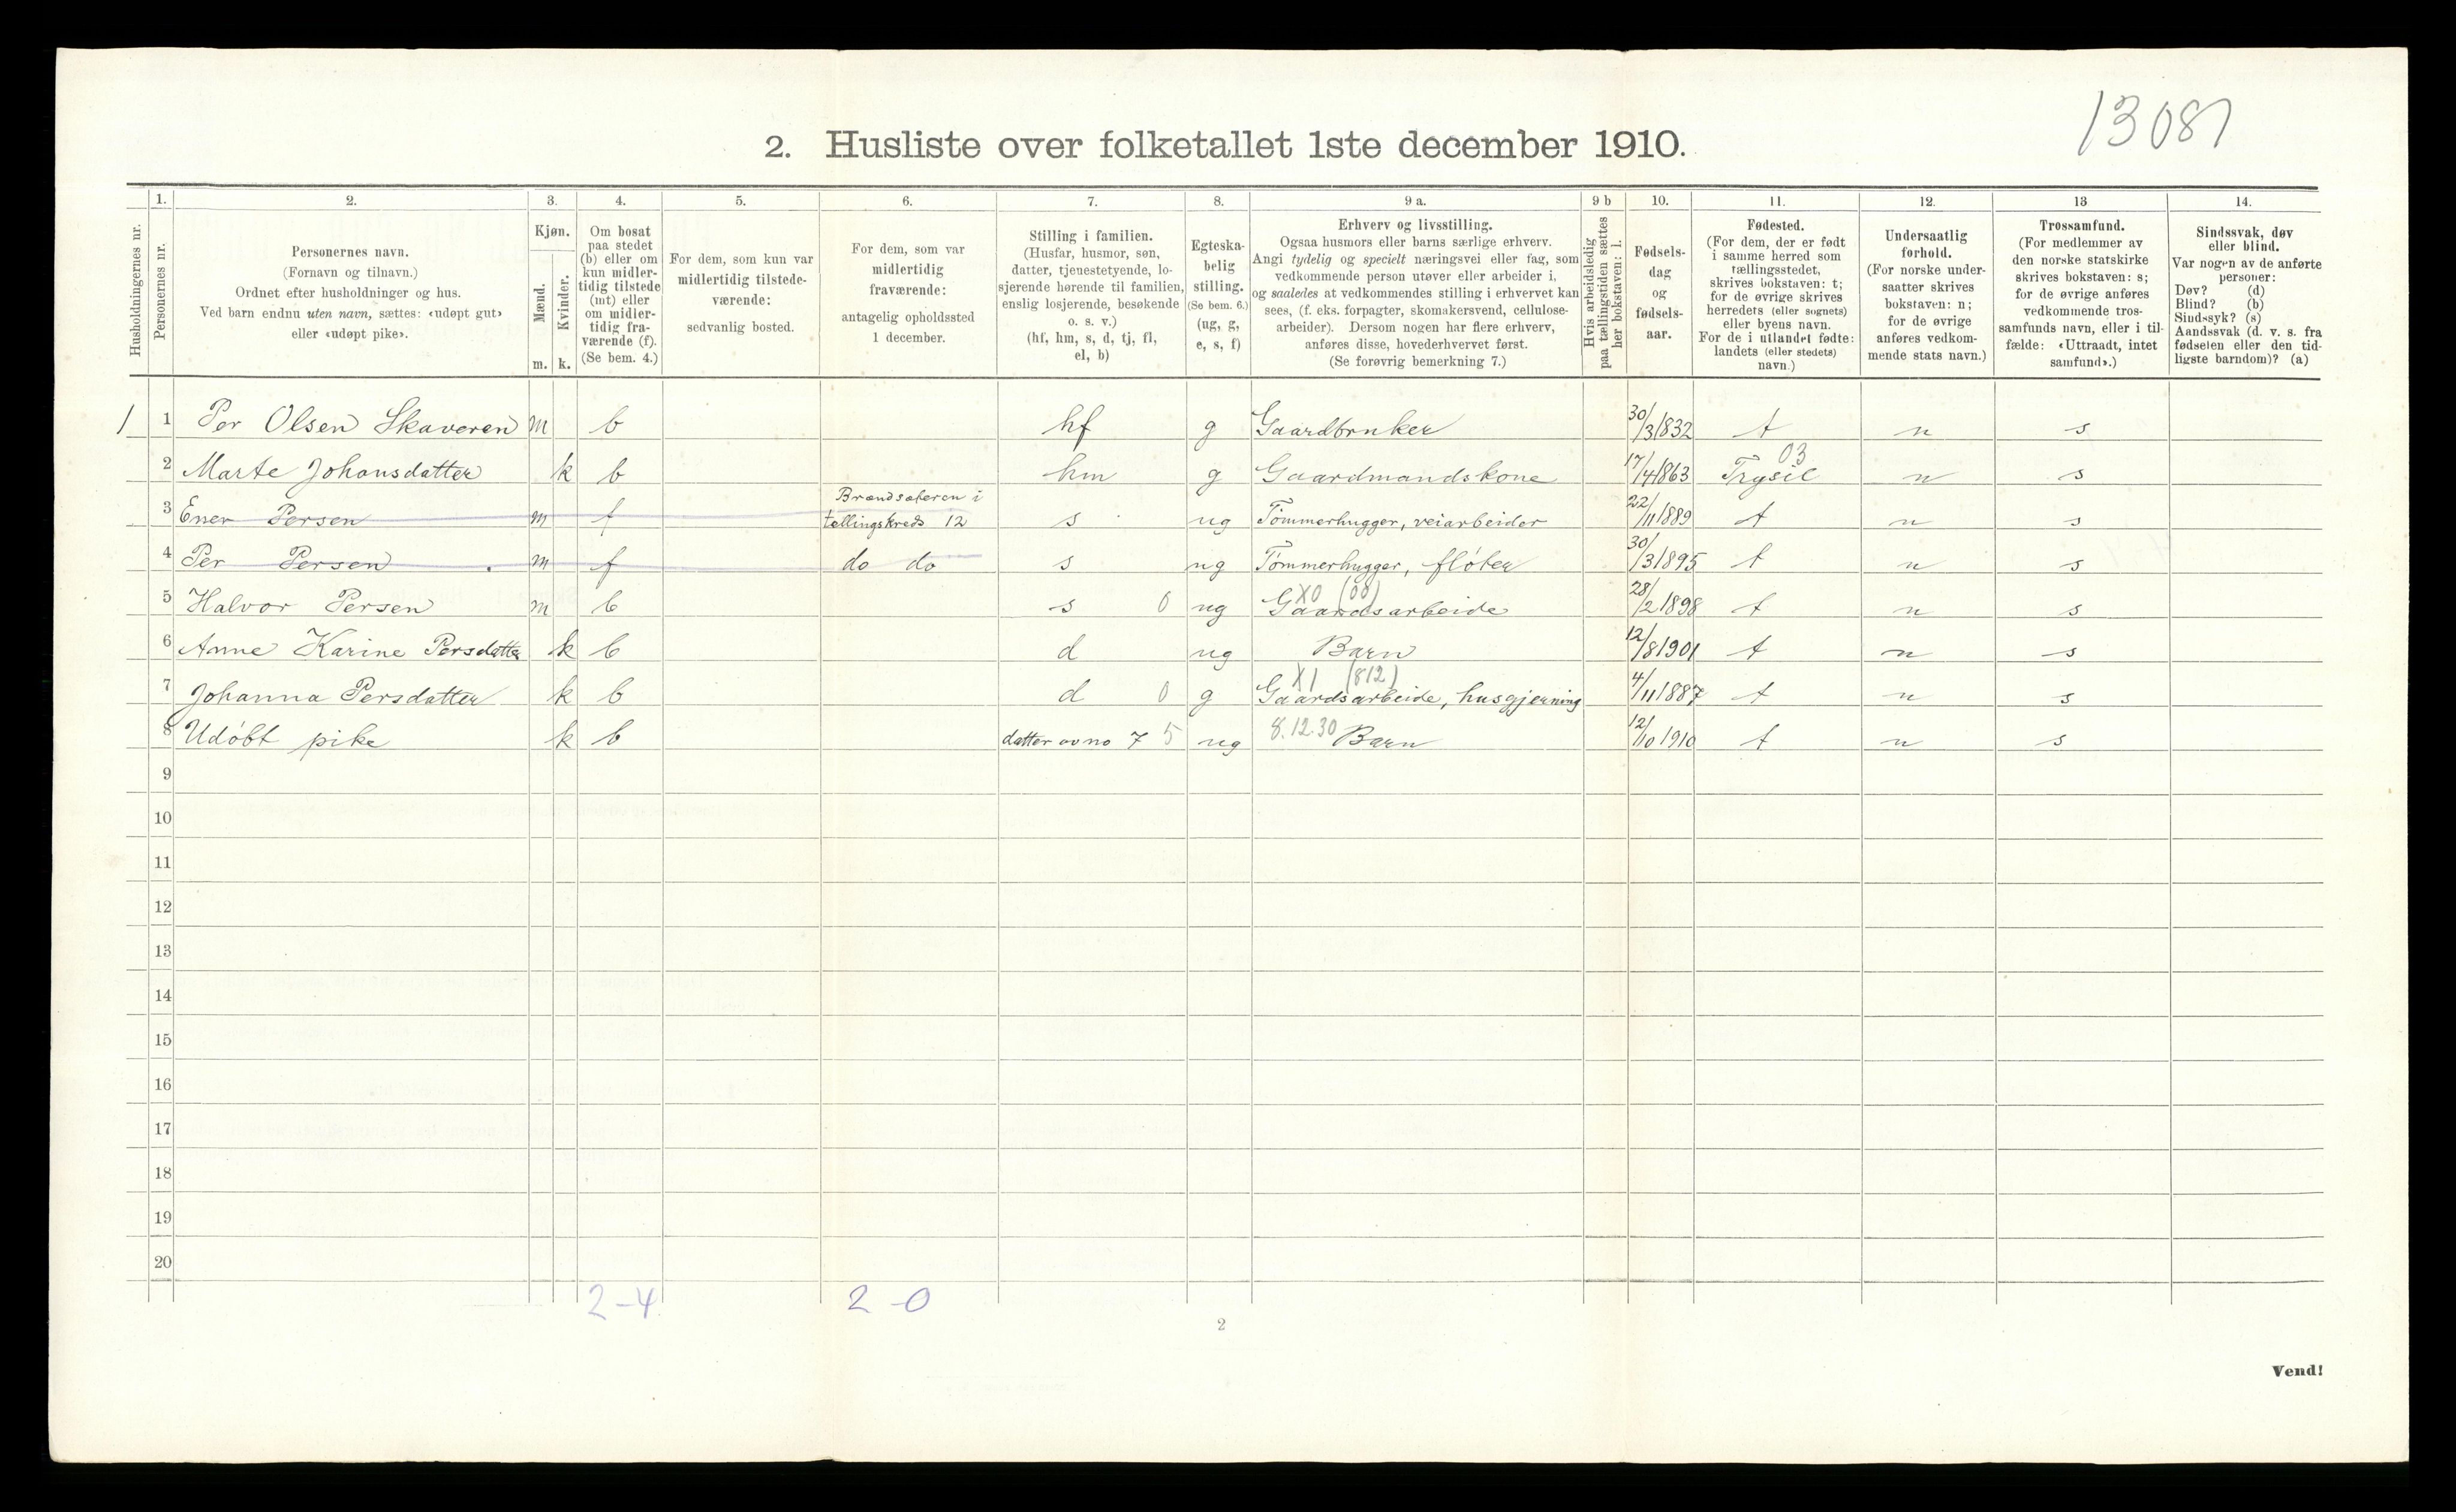 13081
2. Husliste over folketallet 1ste december 1910.
Husholdningernes nr.
1.
Personernes nr.
2.
Personernes navn.
(Fornavn og tilnavn.)
Ordnet efter husholdninger og hus.
Ved barn endnu uten navn, sættes: «udøpt gut»
eller «udøpt pike».
3.
Kjøn.
Mænd.
Kvinder.
m. k.
4.
Om bosat
paa stedet
(b) eller om
kun midler-
tidig tilstede
(mt) eller
om midler-
tidig fra-
værende (f).
(Se bem. 4.)
5.
For dem, som kun var
midlertidig tilstede-
værende:
sedvanlig bosted.
6.
For dem, som var
midlertidig
fraværende:
antagelig opholdssted
1 december.
7.
Stilling i familien.
(Husfar, husmor, søn,
datter, tjenestetyende, lo-
sjerende hørende til familien,
enslig losjerende, besøkende
o. s. v.)
(hf, hm, s, d, tj, fl,
el, b)
8.
Egteska-
belig
stilling.
(Se bem. 6.)
(ug, g,
e, s, f)
9 a.
Erhverv og livsstilling.
Ogsaa husmors eller barns særlige erhverv.
Angi tydelig og specielt næringsvei eller fag, som
vedkommende person utøver eller arbeider i,
og saaledes at vedkommendes stilling i erhvervet kan
sees, (f. eks. forpagter, skomakersvend, cellulose-
arbeider). Dersom nogen har flere erhverv,
anføres disse, hovederhvervet først.
(Se forøvrig bemerkning 7.)
9 b
Hvis arbeidsledig
paa tællingstiden sættes
her bokstaven: l.
10.
Fødsels-
dag
og
fødsels-
aar.
11.
Fødested.
(For dem, der er født
i samme herred som
tællingsstedet,
skrives bokstaven: t;
for de øvrige skrives
herredets (eller sognets)
eller byens navn.
For de i utlandet fødte:
landets (eller stedets)
navn.)
12.
Undersaatlig
forhold.
(For norske under-
saatter skrives
bokstaven: n;
for de øvrige
anføres vedkom-
mende stats navn.)
13
Trossamfund.
(For medlemmer av
den norske statskirke
skrives bokstaven: s;
for de øvrige anføres
vedkommende tros-
samfunds navn, eller i til-
fælde: «Uttraadt, intet
samfund».)
14.
Sindssvak, døv
eller blind.
Var nogen av de anførte
personer:
Døv? (d)
Blind? (b)
Sindssyk? (s)
Aandssvak (d. v. s. fra
fødselen eller den tid-
ligste barndom)? (a)
1 1 Per Olsen Skaveren m b hf g Gaardbruker 30/3 1832 t n s
03
2 Marte Johansdatter k b hm g Gaardmandskone 17/4 1863 Trysil n s
Brændsæteren i
3 Ener Persen m f tellingskreds 12 s ug Tömmerhugger, veiarbeider 22/11 1889 t n s
4 Per Persen m f do do s ug Tömmerhugger, flöter 30/3 1895 t n s
X0 (08)
5 Halvor Persen m b s 0 ug Gaardsarbeide 28/2 1898 t n s
6 Anne Karine Persdatter k b d ug Barn 12/8 1901 t n s
X1 (812)
7 Johanna Persdatter k b d 0 g Gaardsarbeide, husgjerning 4/11 1887 t n s
8 Udöbt pike k b datter av no 7 5 ug 8.12.30 Barn 12/10 1910 t n s
9
10
11
12
13
14
15
16
17
18
19
20
2-4 2-0
2
Vend!